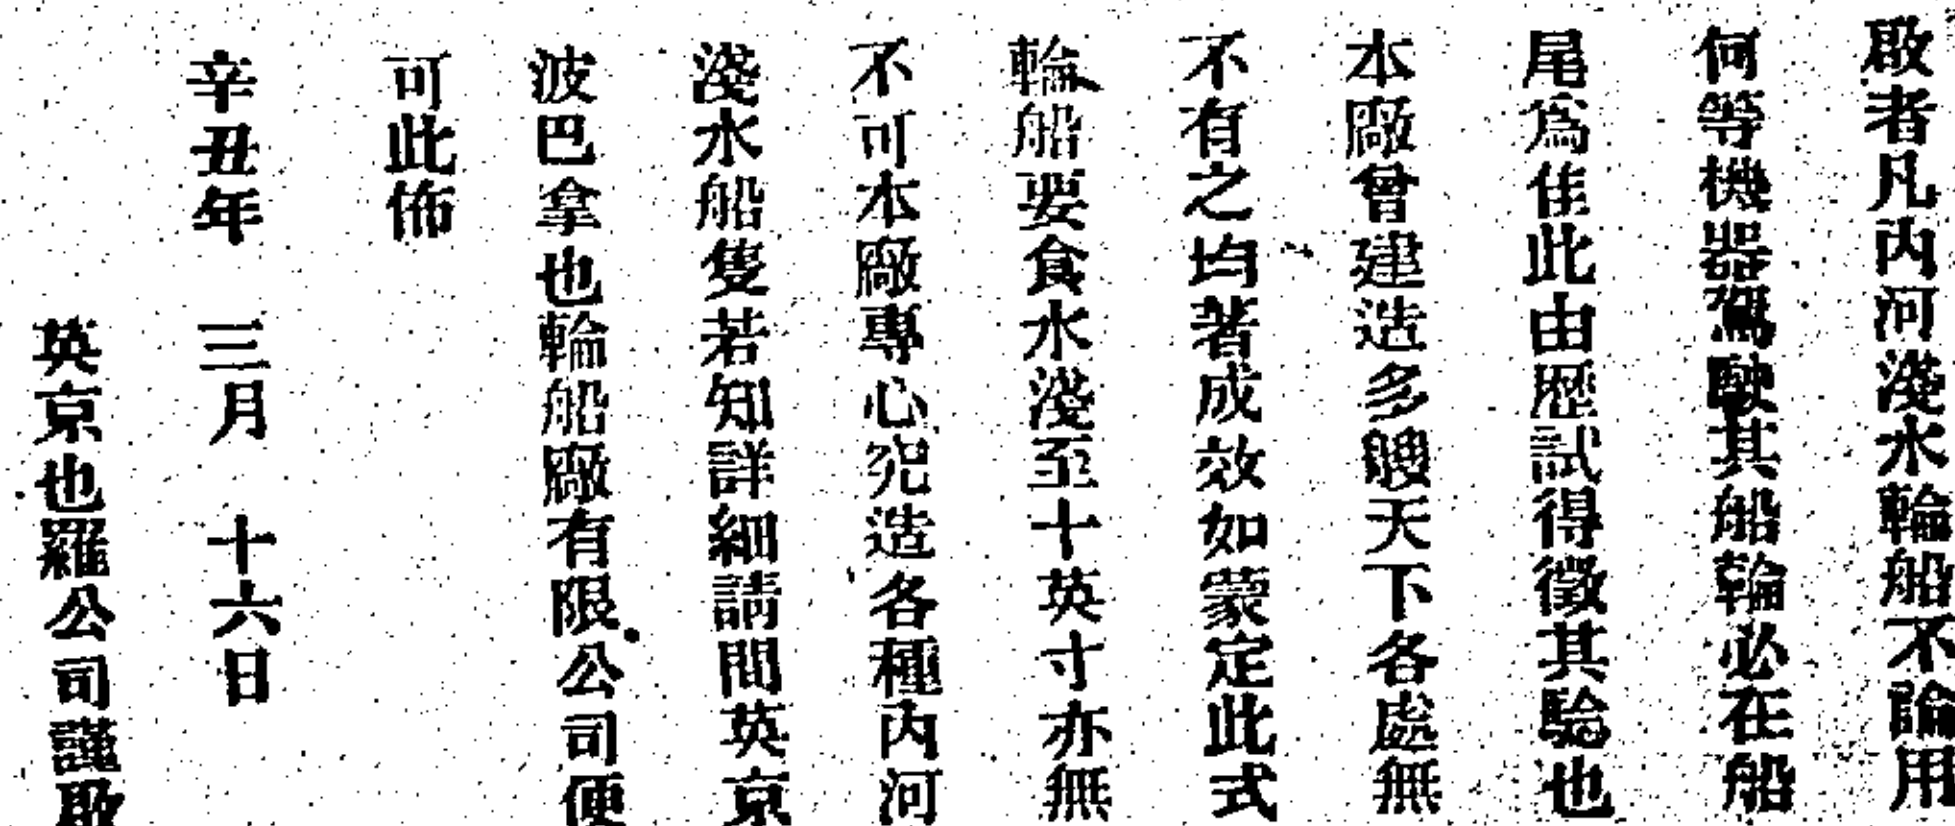 啟者凡內河淺水輪船不論用
何等機器駕駛其船輪必在船
尾爲佳此由歷試得徵其驗也
本廠曾建造多艘天下各處無
不有之均著成效如蒙定此式
輪船要食水淺至十英寸亦無
不可本廠專心究造各種內河
淺水船隻若知詳細請問英京
波巴拿也輪船廠有限公司便
可此佈
辛丑年 三月 十六日
英京也羅公司謹啟